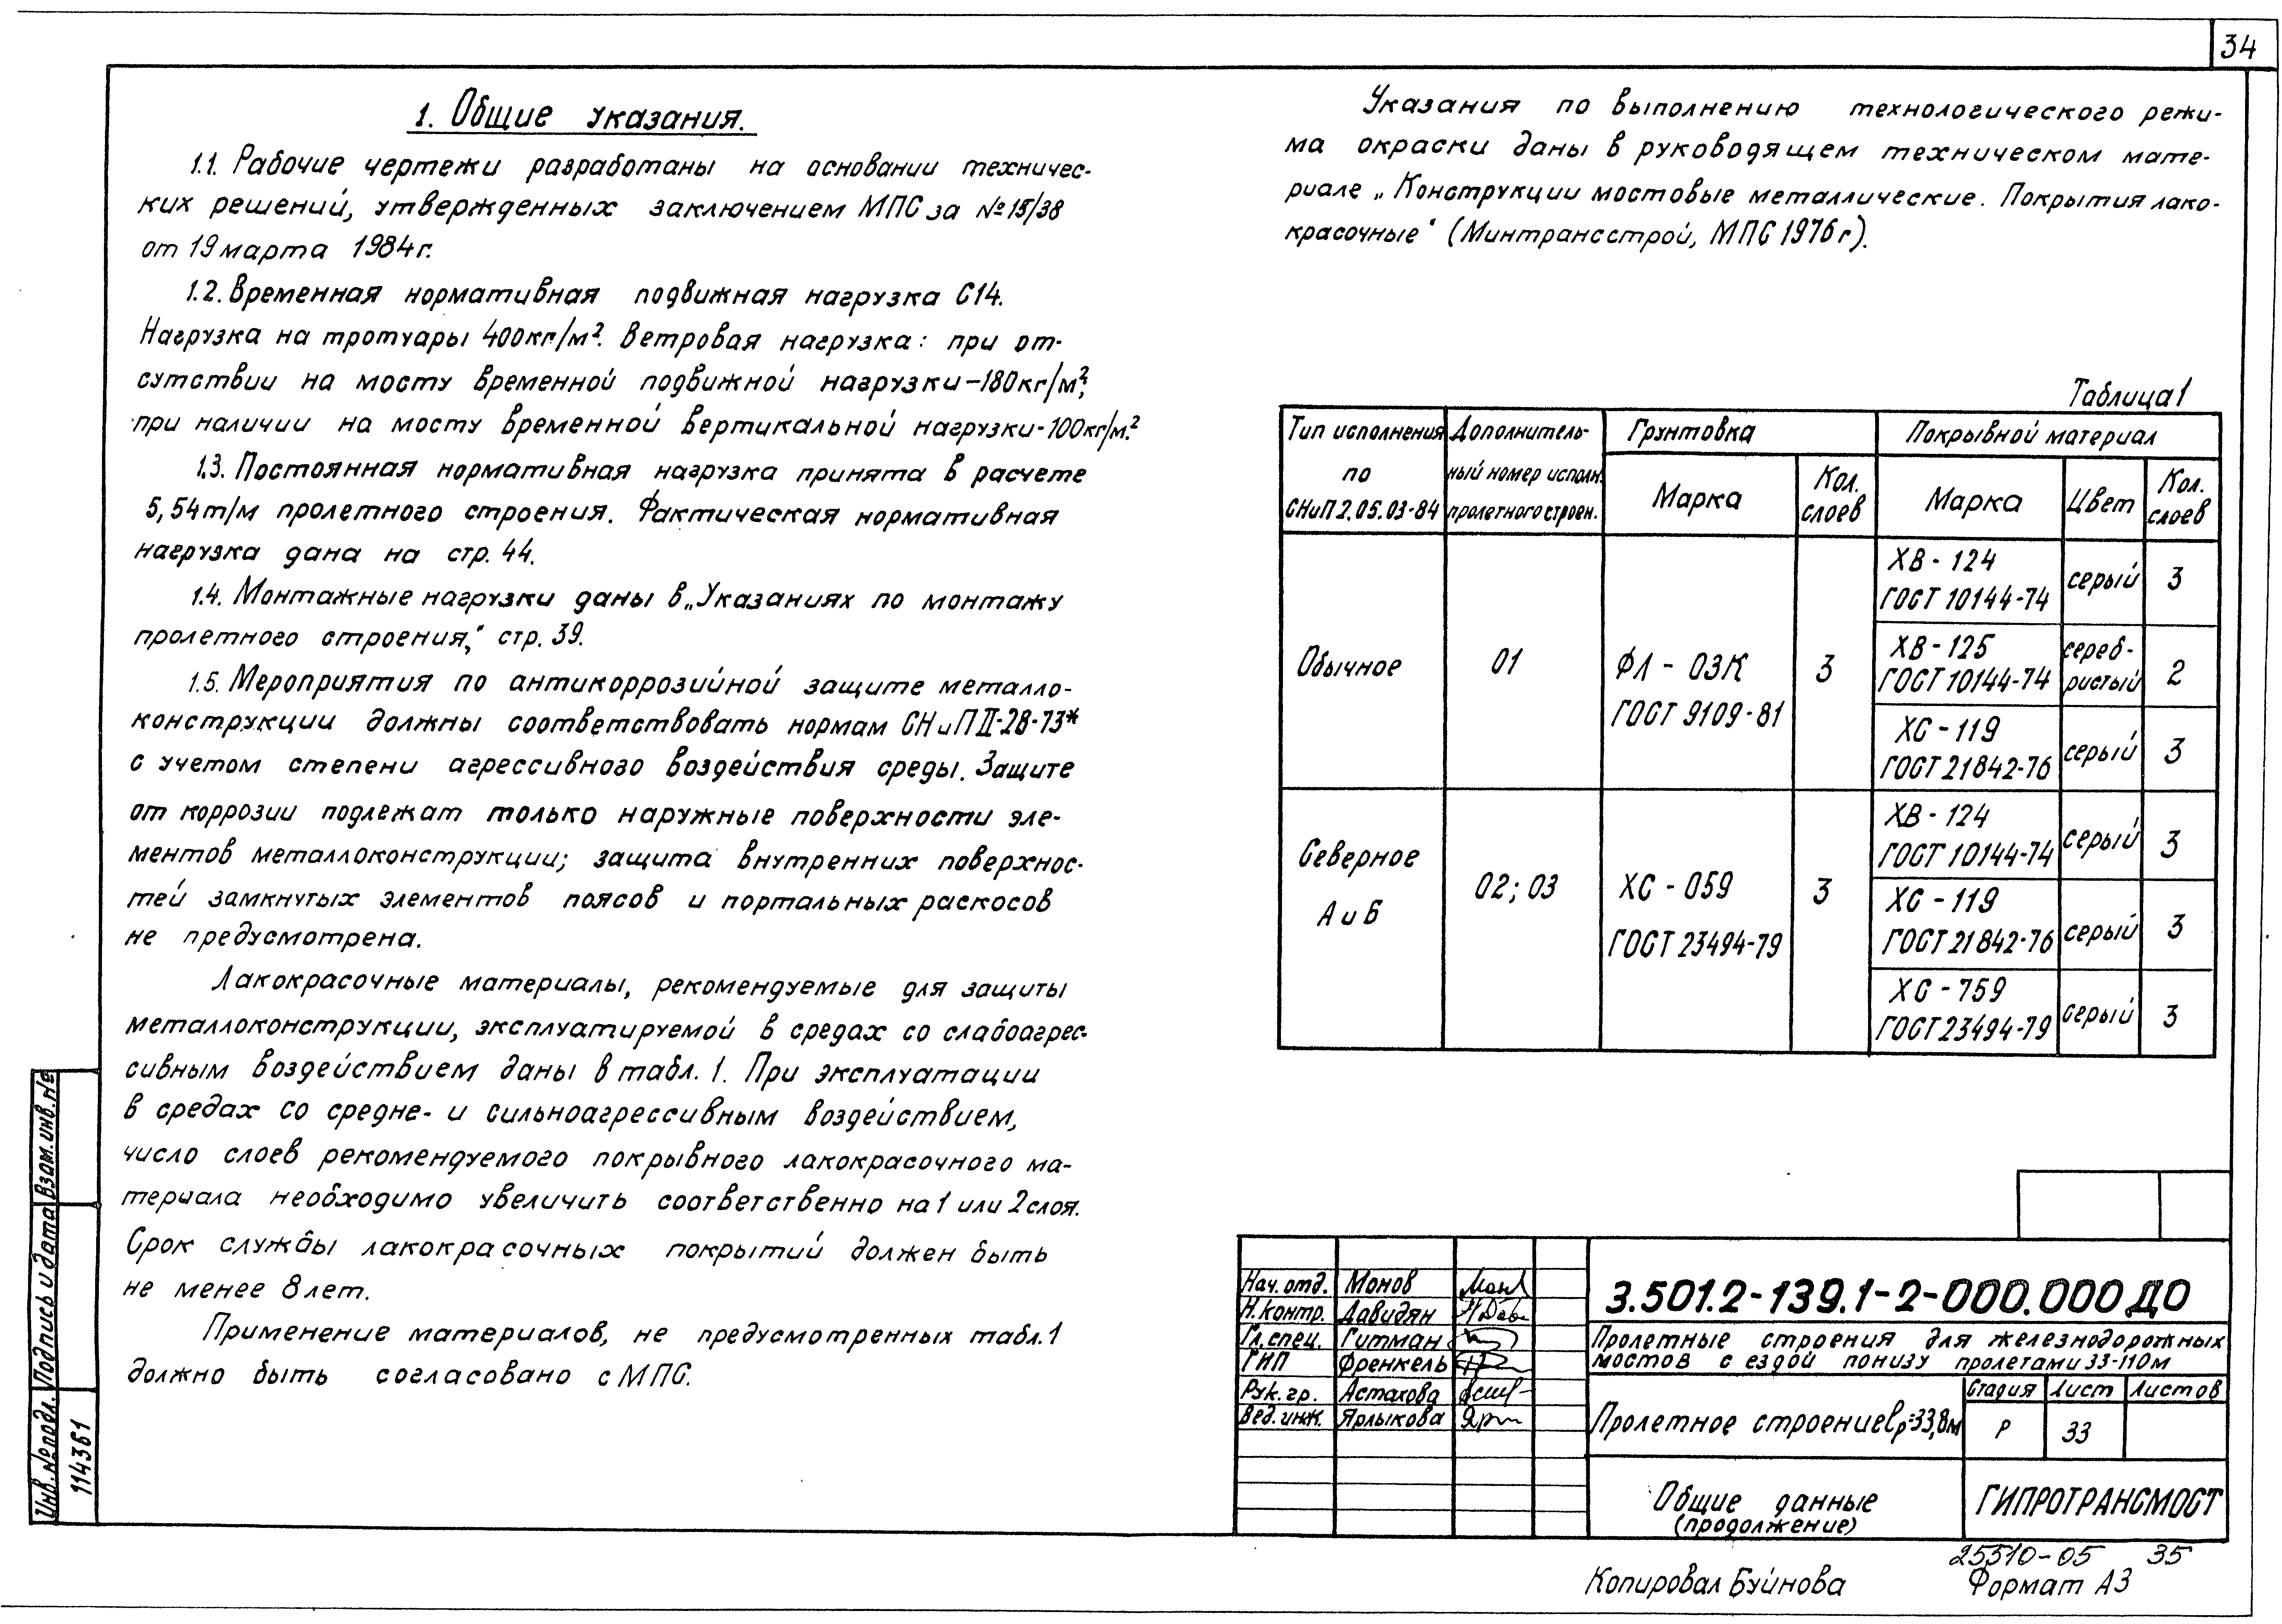 34
1. Общие указания.
1.1. Рабочие чертежи разработаны на основании техничес-
ких решений, утвержденных заключением МПС за №15/38
от 19 марта 1984г.
1.2. Временная нормативная подвижная нагрузка С14.
Нагрузка на тротуары 400кг/м². Ветровая нагрузка: при от-
сутствии на мосту временной подвижной нагрузки-180кг/м²;
при наличии на мосту временной вертикальной нагрузки-100кг/м².
1.3. Постоянная нормативная нагрузка принята в расчете
5,54т/м пролетного строения. Фактическая нормативная
нагрузка дана на стр. 44.
1.4. Монтажные нагрузки даны в „Указаниях по монтажу
пролетного строения," стр. 39.
1.5. Мероприятия по антикоррозийной защите металло-
конструкции должны соответствовать нормам СНиП II-28-73*
с учетом степени агрессивного воздействия среды. Защите
от коррозии подлежат только наружные поверхности эле-
ментов металлоконструкции; защита внутренних поверхнос-
тей замкнутых элементов поясов и портальных раскосов
не предусмотрена.
Лакокрасочные материалы, рекомендуемые для защиты
металлоконструкции, эксплуатируемой в средах со слабоагрес-
сивным воздействием даны в табл. 1. При эксплуатации
в средах со средне- и сильноагрессивным воздействием,
число слоев рекомендуемого покрывного лакокрасочного ма-
териала необходимо увеличить соответственно на 1 или 2 слоя.
Срок службы лакокрасочных покрытий должен быть
не менее 8 лет.
Применение материалов, не предусмотренных табл. 1
должно быть согласовано с МПС.
Указания по выполнению технологического режи-
ма окраски даны в руководящем техническом мате-
риале „Конструкции мостовые металлические. Покрытия лако-
красочные" (Минтрансстрой, МПС 1976г).
Таблица 1
Тип исполнения по СНиП 2.05.03-84
Дополнитель-
ный номер исполн.
пролетного строен.
Грунтовка
Покрывной материал
Марка
Кол. слоев
Марка
Цвет
Кол. слоев
Обычное
01
ФЛ - 03К
ГОСТ 9109-81
3
ХВ - 124
ГОСТ 10144-74
серый
3
ХВ - 125
ГОСТ 10144-74
сереб-
ристый
2
ХС - 119
ГОСТ 21842-76
серый
3
Северное
А и Б
02; 03
ХС - 059
ГОСТ 23494-79
3
ХВ - 124
ГОСТ 10144-74
серый
3
ХС - 119
ГОСТ 21842-76
серый
3
ХС - 759
ГОСТ 23494-79
серый
3
Взам. инв. №
Подпись и дата
Инв. № подл.
114361
Нач. отд. Монов
Н. контр. Давидян
Гл. спец. Гитман
ГИП Френкель
Рук. гр. Астахова
Вед. инж. Ярлыкова
3.501.2-139.1-2-000.000 ДО
Пролетные строения для железнодорожных
мостов с ездой понизу пролетами 33-110м
Пролетное строение ℓр=33,8м
Стадия Лист Листов
Р 33
Общие данные
(продолжение)
ГИПРОТРАНСМОСТ
25510-05 35
Копировал Буйнова
Формат А3